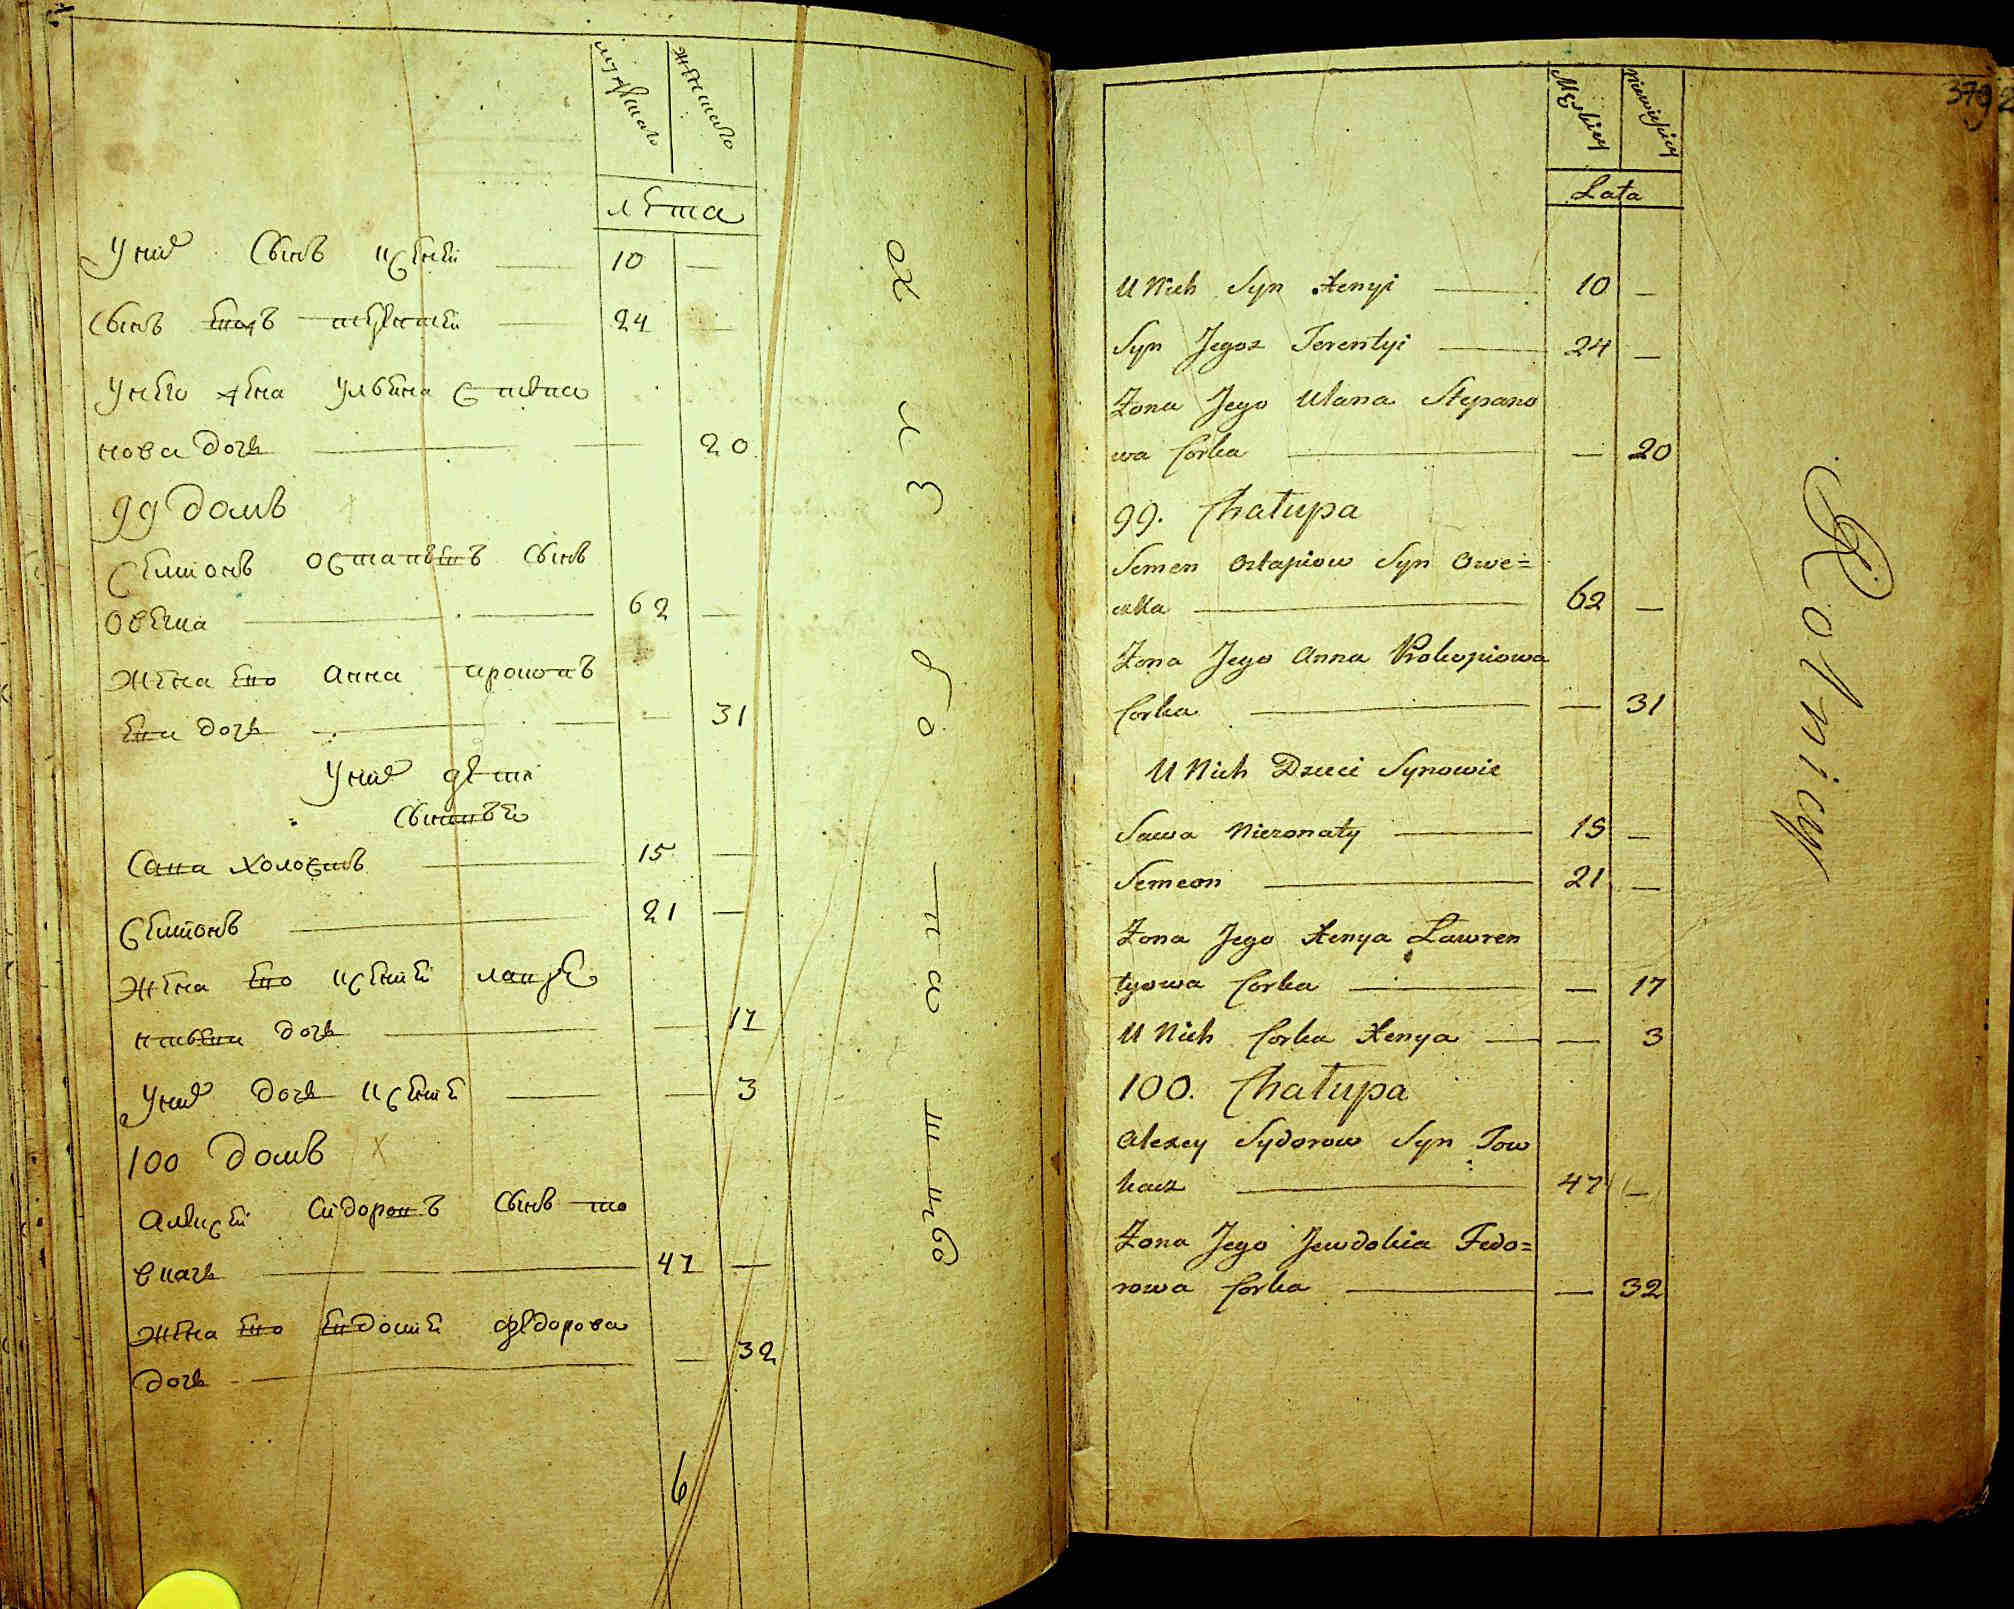 мужеска
женска
лета
У них Сынъ Ксеней 10 —
Сынъ Теренътей 24 —
У него жена Ульяна Степа
нова дочь 20
99 домъ
Семионъ Остапьевъ Сынъ
Овечка 62 —
Жена его Анна Прокопь
ева дочь — 31
У них дети
Сыновья
Сава Холостъ 15 —
Семионъ 21 —
Жена его Ксения Лавре
нтьева дочь — 17
У них дочь Ксения — 3
100 домъ
Алексей Сидоровъ Сынъ То
вкачь 47 —
Жена его Евдокия Федорова
дочь — 32
6
379
Męskiey
Niewieskiey
Lata
U Nich Syn Xenyi 10 —
Syn Jegoz Terentyi 24 —
Zona Jego Ulana Stepano
wa Corka — 20
99. Chałupa
Semen Ostapiow Syn Owe=
czka 62 —
Zona Jego Anna Prokopiowa
Corka — 31
U Nich Dzieci Synowie
Sawa Niezonaty 15 —
Semeon 21 —
Zona Jego Xenya Lawren
tyowa Corka — 17
U Nich Corka Xenya — 3
100. Chałupa
Alexey Sydorow Syn Tow
kacz 47 —
Zona Jego Jewdokia Fedo=
rowa Corka — 32
Rolnicy